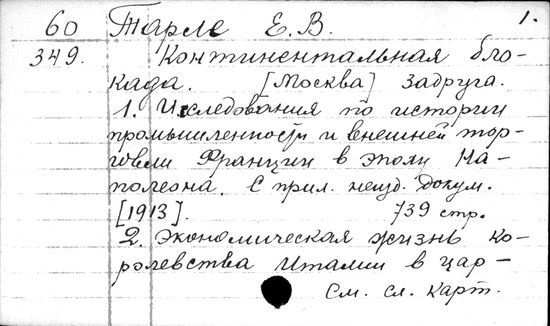 60 Тарле Е.В. 1.
349. Континентальная бло-
када. [Москва] Задруга.
1. Исследования по истории
промышленности и внешней тор-
говли Франции в эпоху На-
полеона. С прил. неизд. докум.
[1913]. 739 стр.
2. Экономическая жизнь ко-
ролевства Италии в цар-
См. сл. карт.